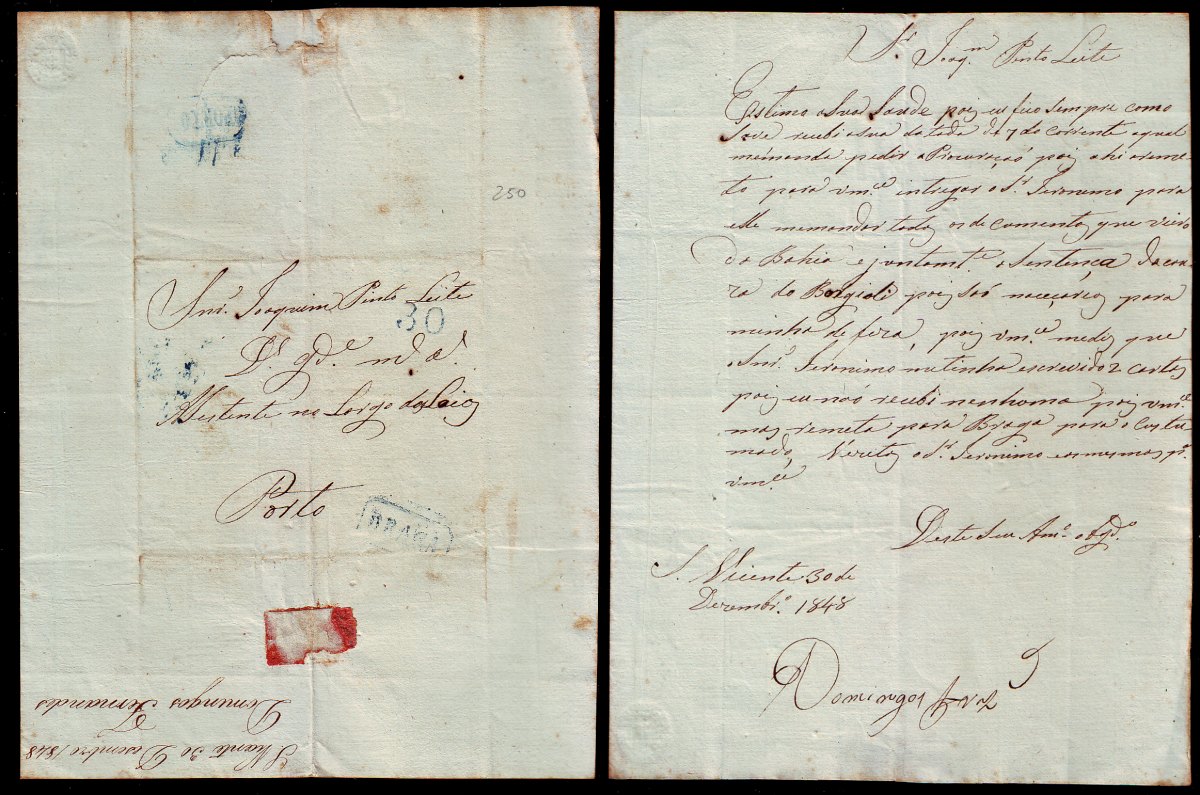 PORTO
250
Snr. Joaquim Pinto Leite
30
Ds. gde. ms. as.
Asistente no Largo da Loios
Porto
BRAGA
S Vicente 30 Dezembro 1848
Domingos Fernandes
Sr. Joaqm. Pinto Leite
Estimo a Sua Saude pois eu fico sempre como
Sove recibi a sua datada de 7 do corrente a qual
me manda pedir a Procuração pois ahi a reme
to para vmce. intregar o Sr. Jeronimo para
elle me mandar todos os decomentos que virão
da Bahia e juntamte. a Sentença da cau
za do pois são necçarios para
minha defeza, pois vmce. me diz que
o Snr. Jeronimo me tinha escrevido 2 cartas
pois eu não recibi nenhoma pois vmce.
mas remeta para Braga para o Costu
mado, o Sr. Jeronimo e as mesmas pa.
vmce.
Deste Seu Amo. obgdo.
S. Vicente 30 de
Dezembro. 1848
Domingos Frz